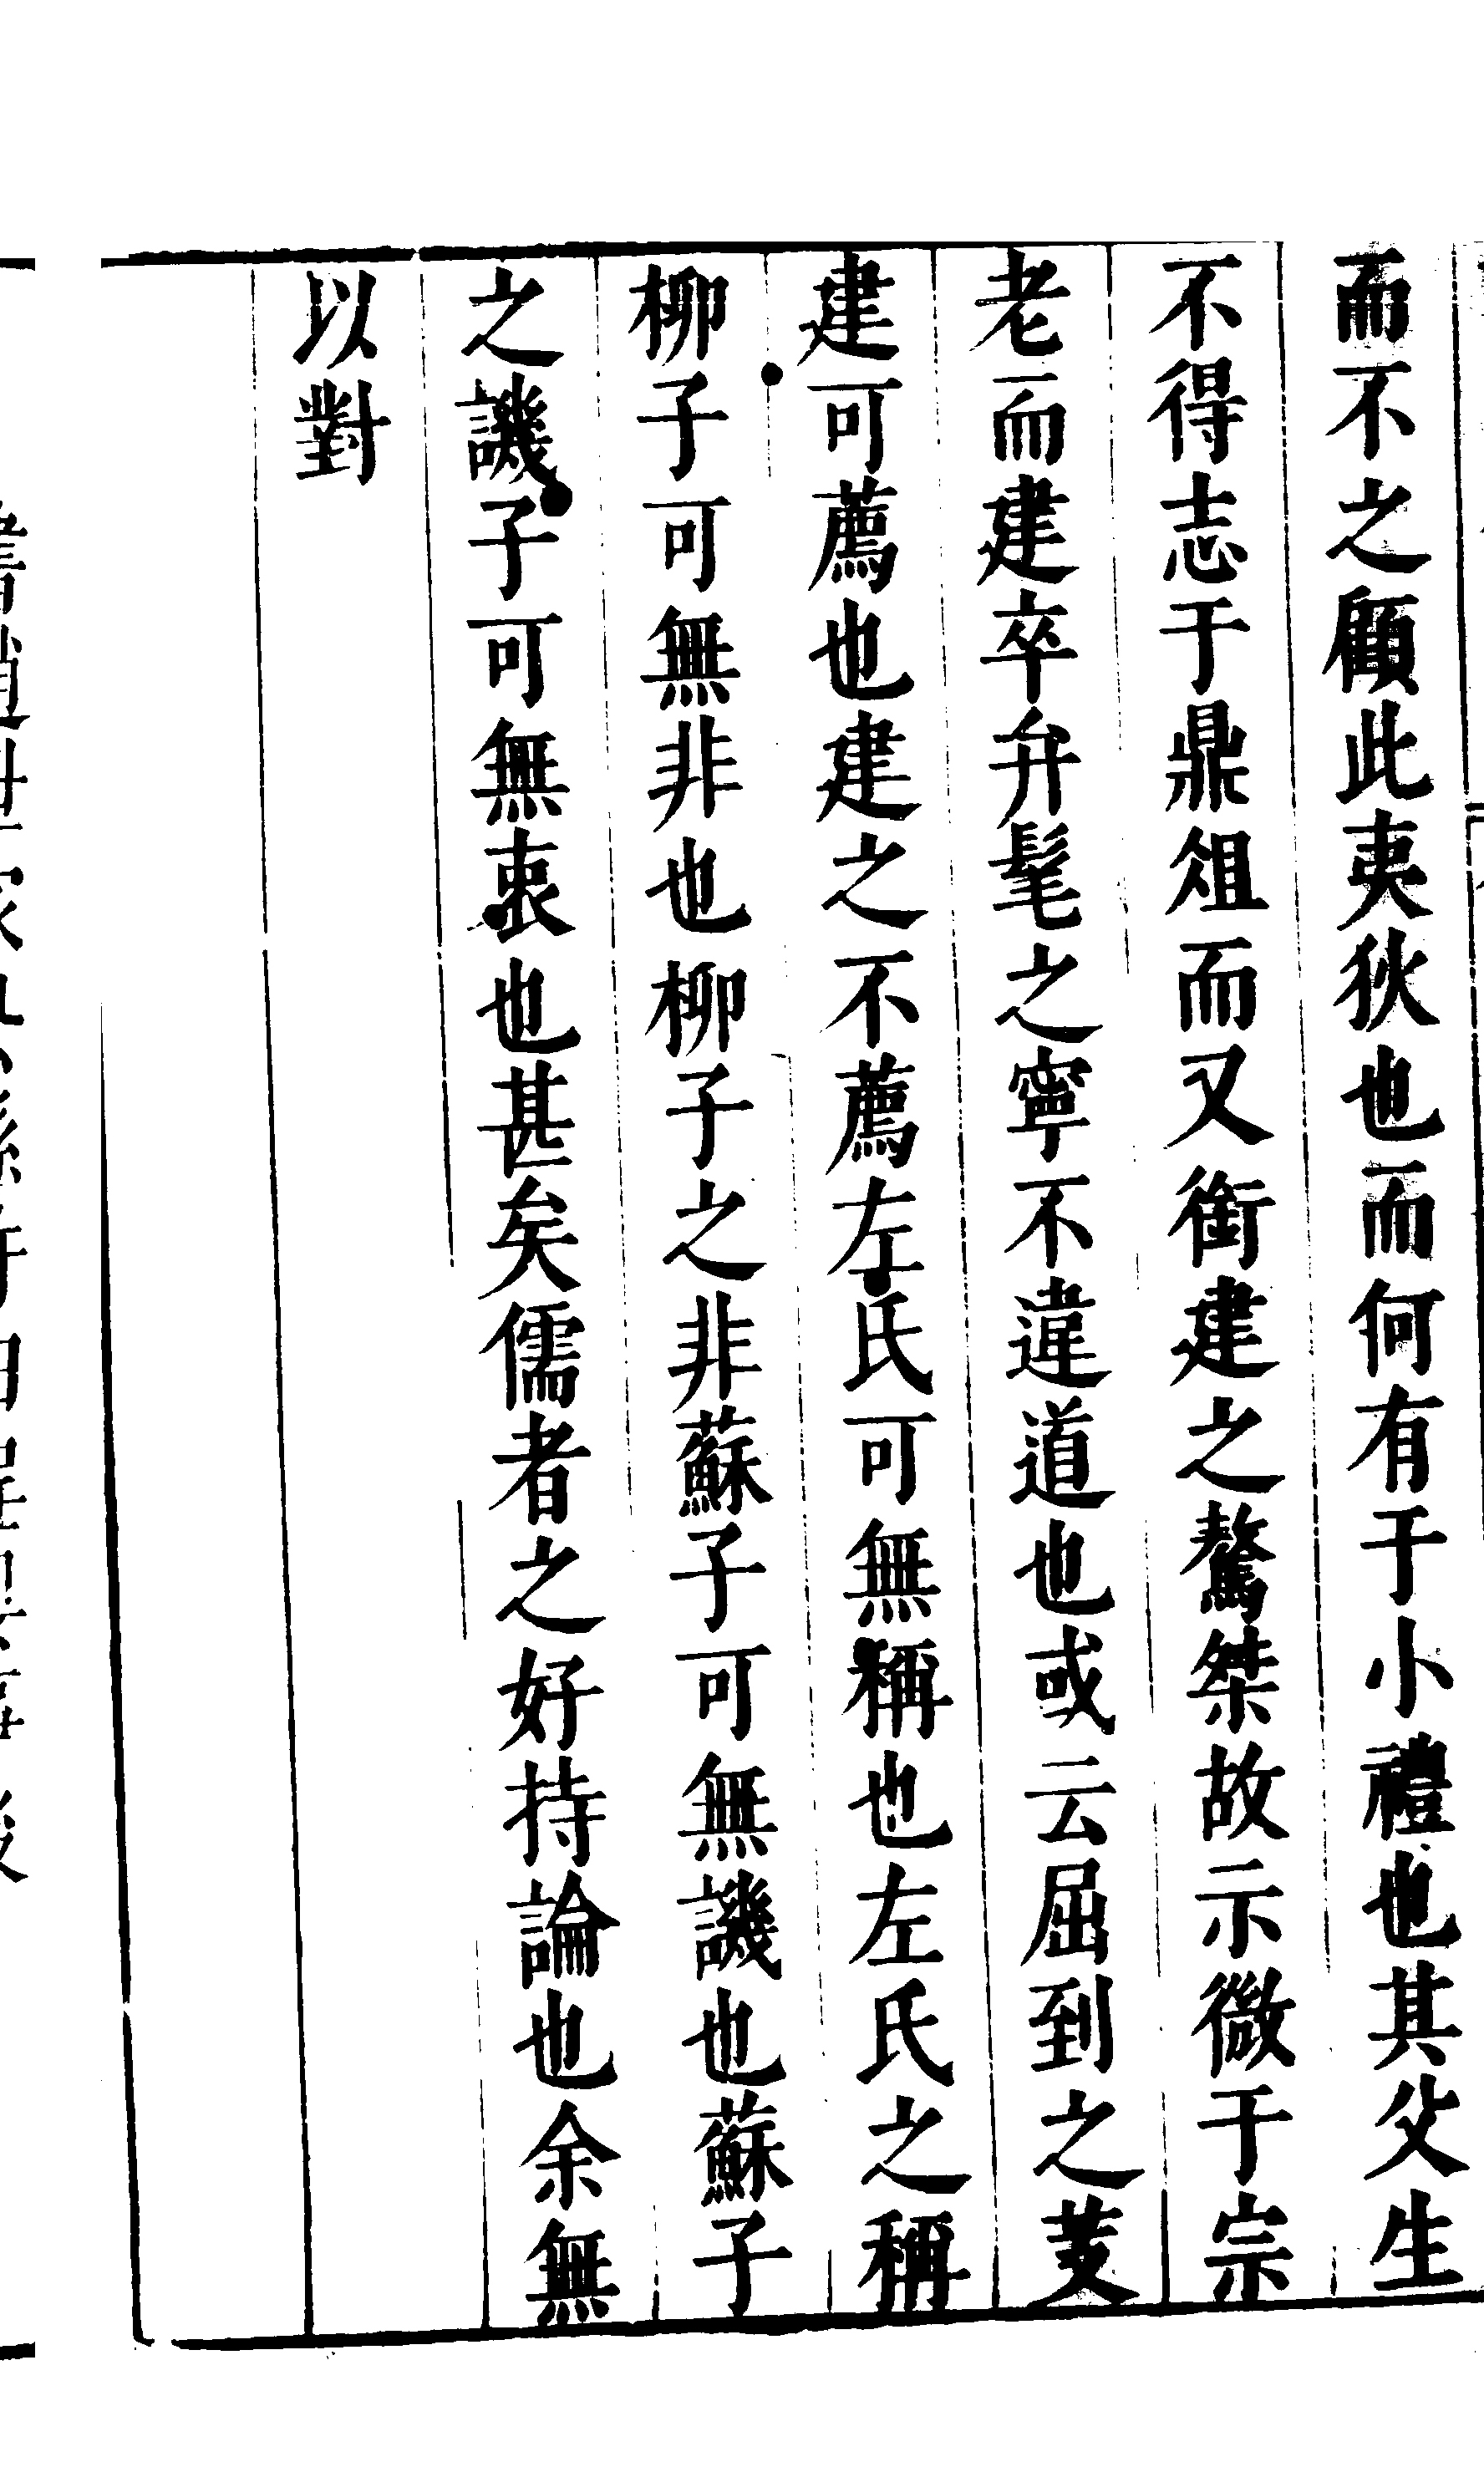 而不之顧此夷狄也而何有于小禮也其父生
不得志于鼎俎而又銜建之驁桀故示微于宗
老而建卒弁髦之寧不違道也或云屈到之芰
建可薦也建之不薦左氏可無稱也左氏之稱
柳子可無非也柳子之非蘇子可無譏也蘇子
之譏子可無衷也甚矣儒者之好持論也余無
以對